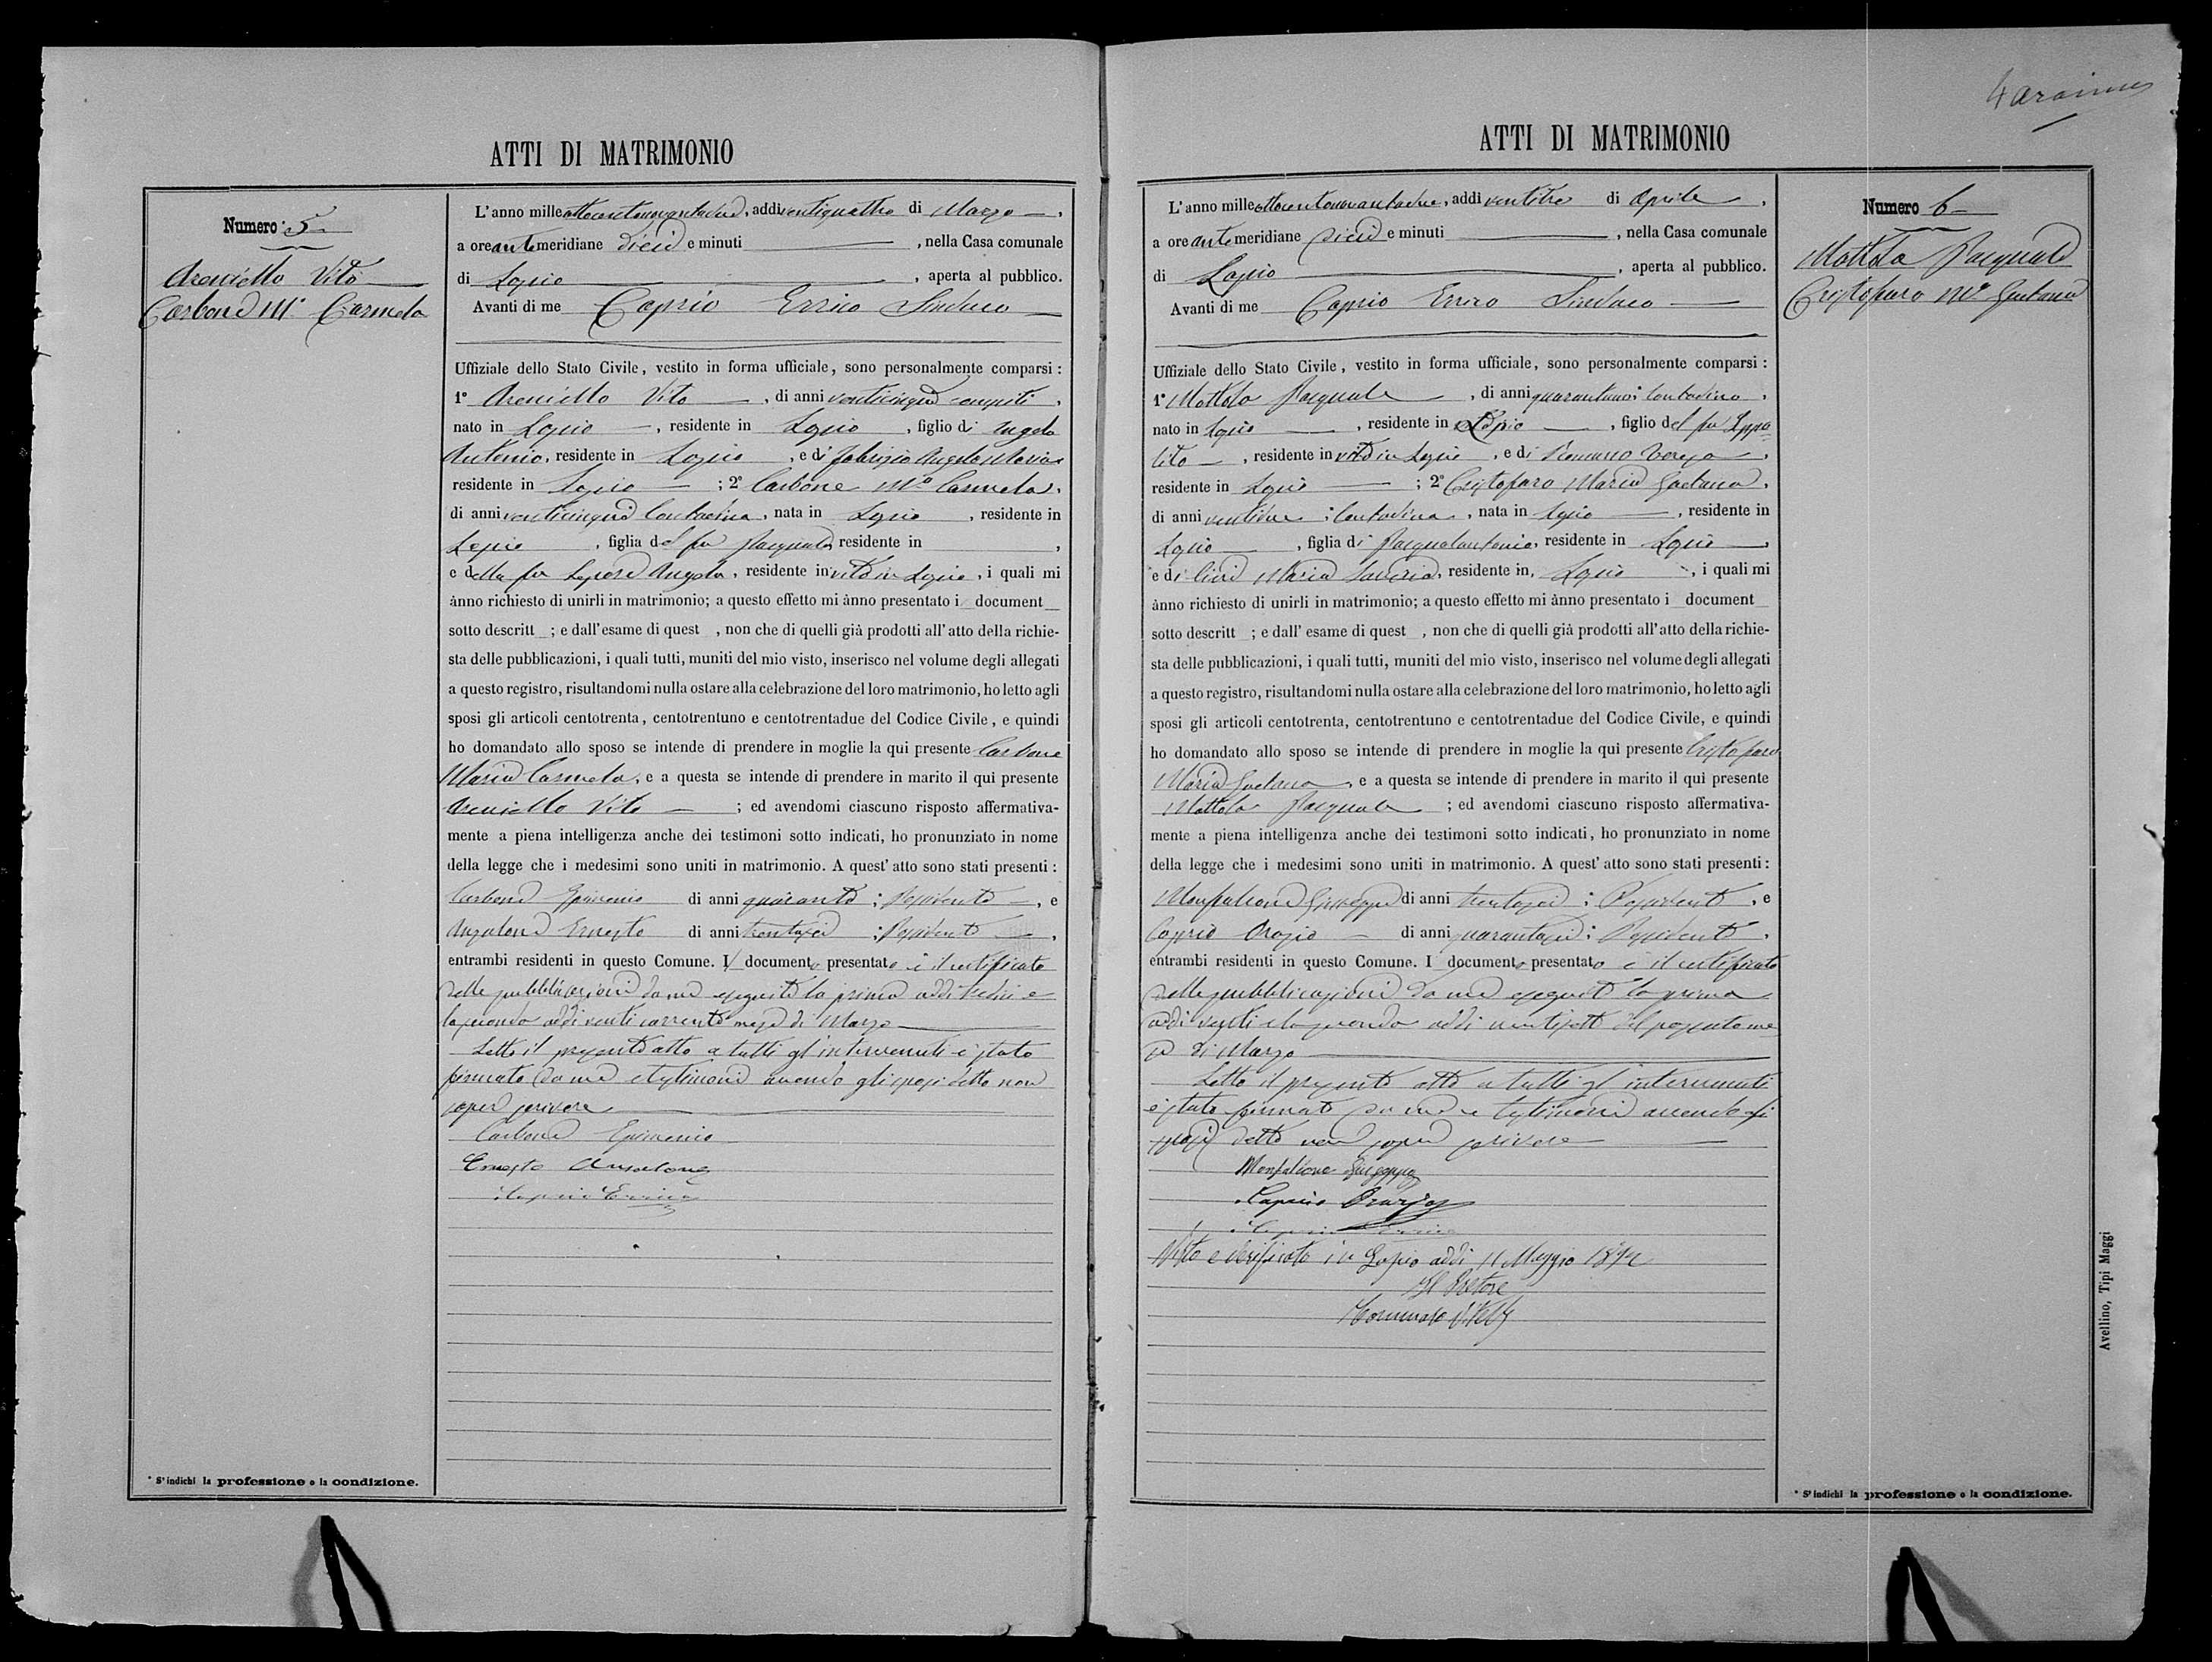 ATTI DI MATRIMONIO
Numero 5
Areniello Vito
Carbone Mª Carmela
L'anno milleottocentonovantadue, addì ventiquattro di Marzo,
a ore antemeridiane dieci e minuti, nella Casa comunale
di Lapio, aperta al pubblico.
Avanti di me Caprio Errico Sindaco
Uffiziale dello Stato Civile, vestito in forma ufficiale, sono personalmente comparsi:
1° Areniello Vito, di anni venticinque compiti,
nato in Lapio, residente in Lapio, figlio di Angelo
Antonio, residente in Lapio, e di Fabrizio Angela Maria
residente in Lapio; 2° Carbone Mª Carmela,
di anni venticinque Contadina, nata in Lapio, residente in
Lapio, figlia del fu Pasquale, residente in ,
e della fu Lepore Angela, residente in vita in Lapio, i quali mi
ànno richiesto di unirli in matrimonio; a questo effetto mi ànno presentato i document
sotto descritt ; e dall'esame di quest , non che di quelli già prodotti all'atto della richie-
sta delle pubblicazioni, i quali tutti, muniti del mio visto, inserisco nel volume degli allegati
a questo registro, risultandomi nulla ostare alla celebrazione del loro matrimonio, ho letto agli
sposi gli articoli centotrenta, centotrentuno e centotrentadue del Codice Civile, e quindi
ho domandato allo sposo se intende di prendere in moglie la qui presente Carbone
Maria Carmela, e a questa se intende di prendere in marito il qui presente
Areniello Vito; ed avendomi ciascuno risposto affermativa-
mente a piena intelligenza anche dei testimoni sotto indicati, ho pronunziato in nome
della legge che i medesimi sono uniti in matrimonio. A quest'atto sono stati presenti:
Carbone Epimenio di anni quaranta; Possidente, e
Anzalone Ernesto di anni trentasei; Possidente,
entrambi residenti in questo Comune. I documento presentato è il certificato
delle pubblicazioni da me eseguite la prima addì tredici e
la seconda addì venti corrente mese di Marzo
Letto il presente atto a tutti gl'intervenuti è stato
firmato da me e testimoni avendo gli sposi detto non
saper scrivere
Carbone Epimenio
Ernesto Anzalone
Caprio Errico
* S'indichi la professione o la condizione.
4 araimo
ATTI DI MATRIMONIO
Numero 6
Mottola Pasquale
Cristofaro Mª Gaetana
L'anno milleottocentonovantadue, addì ventitre di Aprile,
a ore antemeridiane dieci e minuti, nella Casa comunale
di Lapio, aperta al pubblico.
Avanti di me Caprio Errico Sindaco
Uffiziale dello Stato Civile, vestito in forma ufficiale, sono personalmente comparsi:
1° Mottola Pasquale, di anni quarantuno; Contadino,
nato in Lapio, residente in Lapio, figlio del fu Ippo-
lito, residente in vita in Lapio, e di Romano Teresa,
residente in Lapio; 2° Cristofaro Maria Gaetana,
di anni ventidue; Contadina, nata in Lapio, residente in
Lapio, figlia di Pasqualantonio, residente in Lapio,
e di Maria Saveria, residente in, Lapio, i quali mi
ànno richiesto di unirli in matrimonio; a questo effetto mi ànno presentato i document
sotto descritt ; e dall'esame di quest , non che di quelli già prodotti all'atto della richie-
sta delle pubblicazioni, i quali tutti, muniti del mio visto, inserisco nel volume degli allegati
a questo registro, risultandomi nulla ostare alla celebrazione del loro matrimonio, ho letto agli
sposi gli articoli centotrenta, centotrentuno e centotrentadue del Codice Civile, e quindi
ho domandato allo sposo se intende di prendere in moglie la qui presente Cristofaro
Maria Gaetana, e a questa se intende di prendere in marito il qui presente
Mottola Pasquale; ed avendomi ciascuno risposto affermativa-
mente a piena intelligenza anche dei testimoni sotto indicati, ho pronunziato in nome
della legge che i medesimi sono uniti in matrimonio. A quest'atto sono stati presenti:
Monfalcone Giuseppe di anni trentasei; Possidente, e
Caprio Orazio di anni quarantasei; Possidente,
entrambi residenti in questo Comune. I documento presentato è il certificato
delle pubblicazioni da me eseguite la prima
addì venti e la seconda addì ventisette del passato me-
se di Marzo
Letto il presente atto a tutti gl'intervenuti
è stato firmato da me e testimoni avendo gli
sposi detto non saper scrivere
Monfalcone Giuseppe
Caprio Orazio
Caprio Errico
Visto e verificato in Lapio addì 11 Maggio 1892
Il Pretore
* S'indichi la professione o la condizione.
Avellino, Tipi Maggi